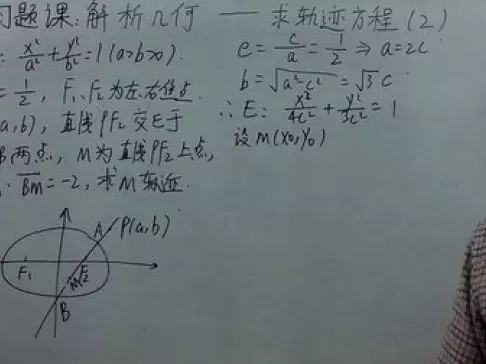 问题课:解析几何 —— 求轨迹方程(2)
: x²/a² + y²/b² = 1 (a>b>0).
= 1/2, F₁、F₂为左、右焦点.
(a,b), 直线PF₂交E于
B两点, M为直线PF₂上点,
· BM = -2, 求M轨迹.
e = c/a = 1/2 ⇒ a=2c
b = √(a²-c²) = √3 c
∴ E: x²/4c² + y²/3c² = 1
设M(x₀,y₀)
A
P(a,b)
F₁
M
F₂
B